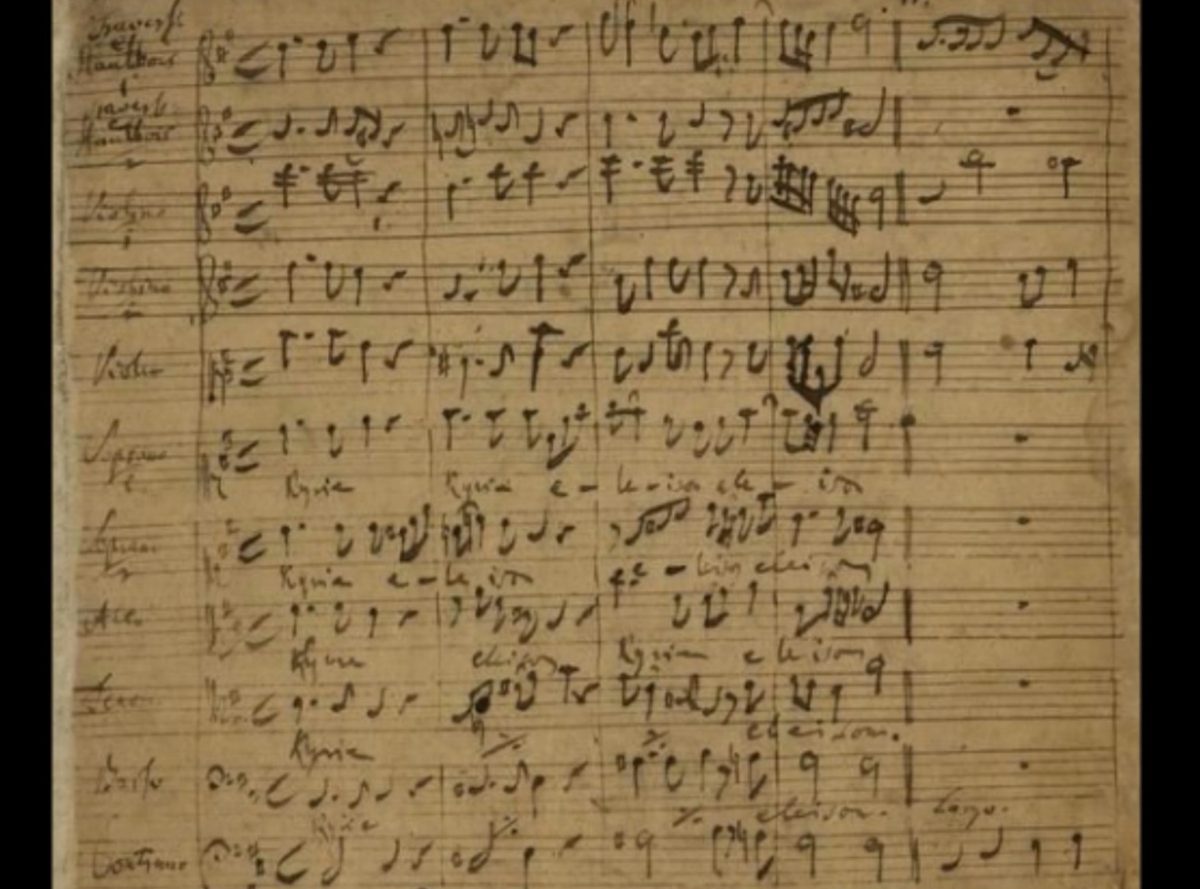 Travers
Hautbois
1
Travers
Hautbois
2
Violino
1
Violino
2
Viola
Soprano
1
Kyrie Kyrie e - le - ison ele - ison
Soprano
2
Kyrie e - le ison e - leison eleison
Alto
Kyrie eleison Kyrie e leison
Tenor
Kyrie eleison.
Basso
Kyrie eleison. Largo.
Continuo